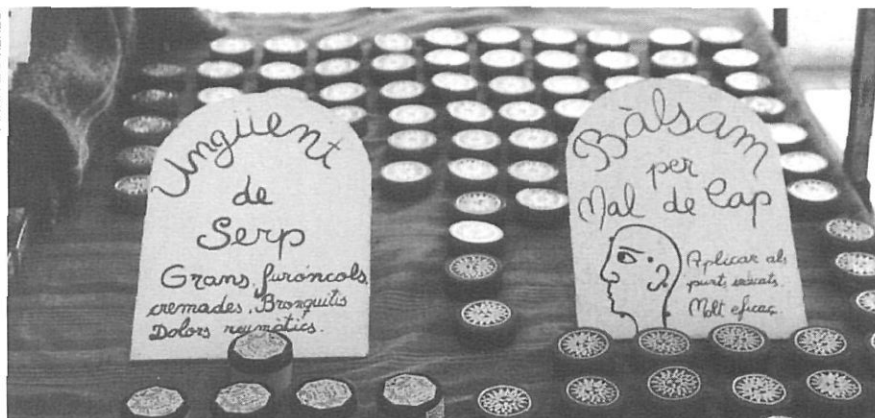 Ungüent
de
Serp
Grans, furóncols,
cremades, Bronquitis
Dolors reumàtics.
Bàlsam
per
Mal de Cap
Aplicar als
punts indicats.
Molt eficaç